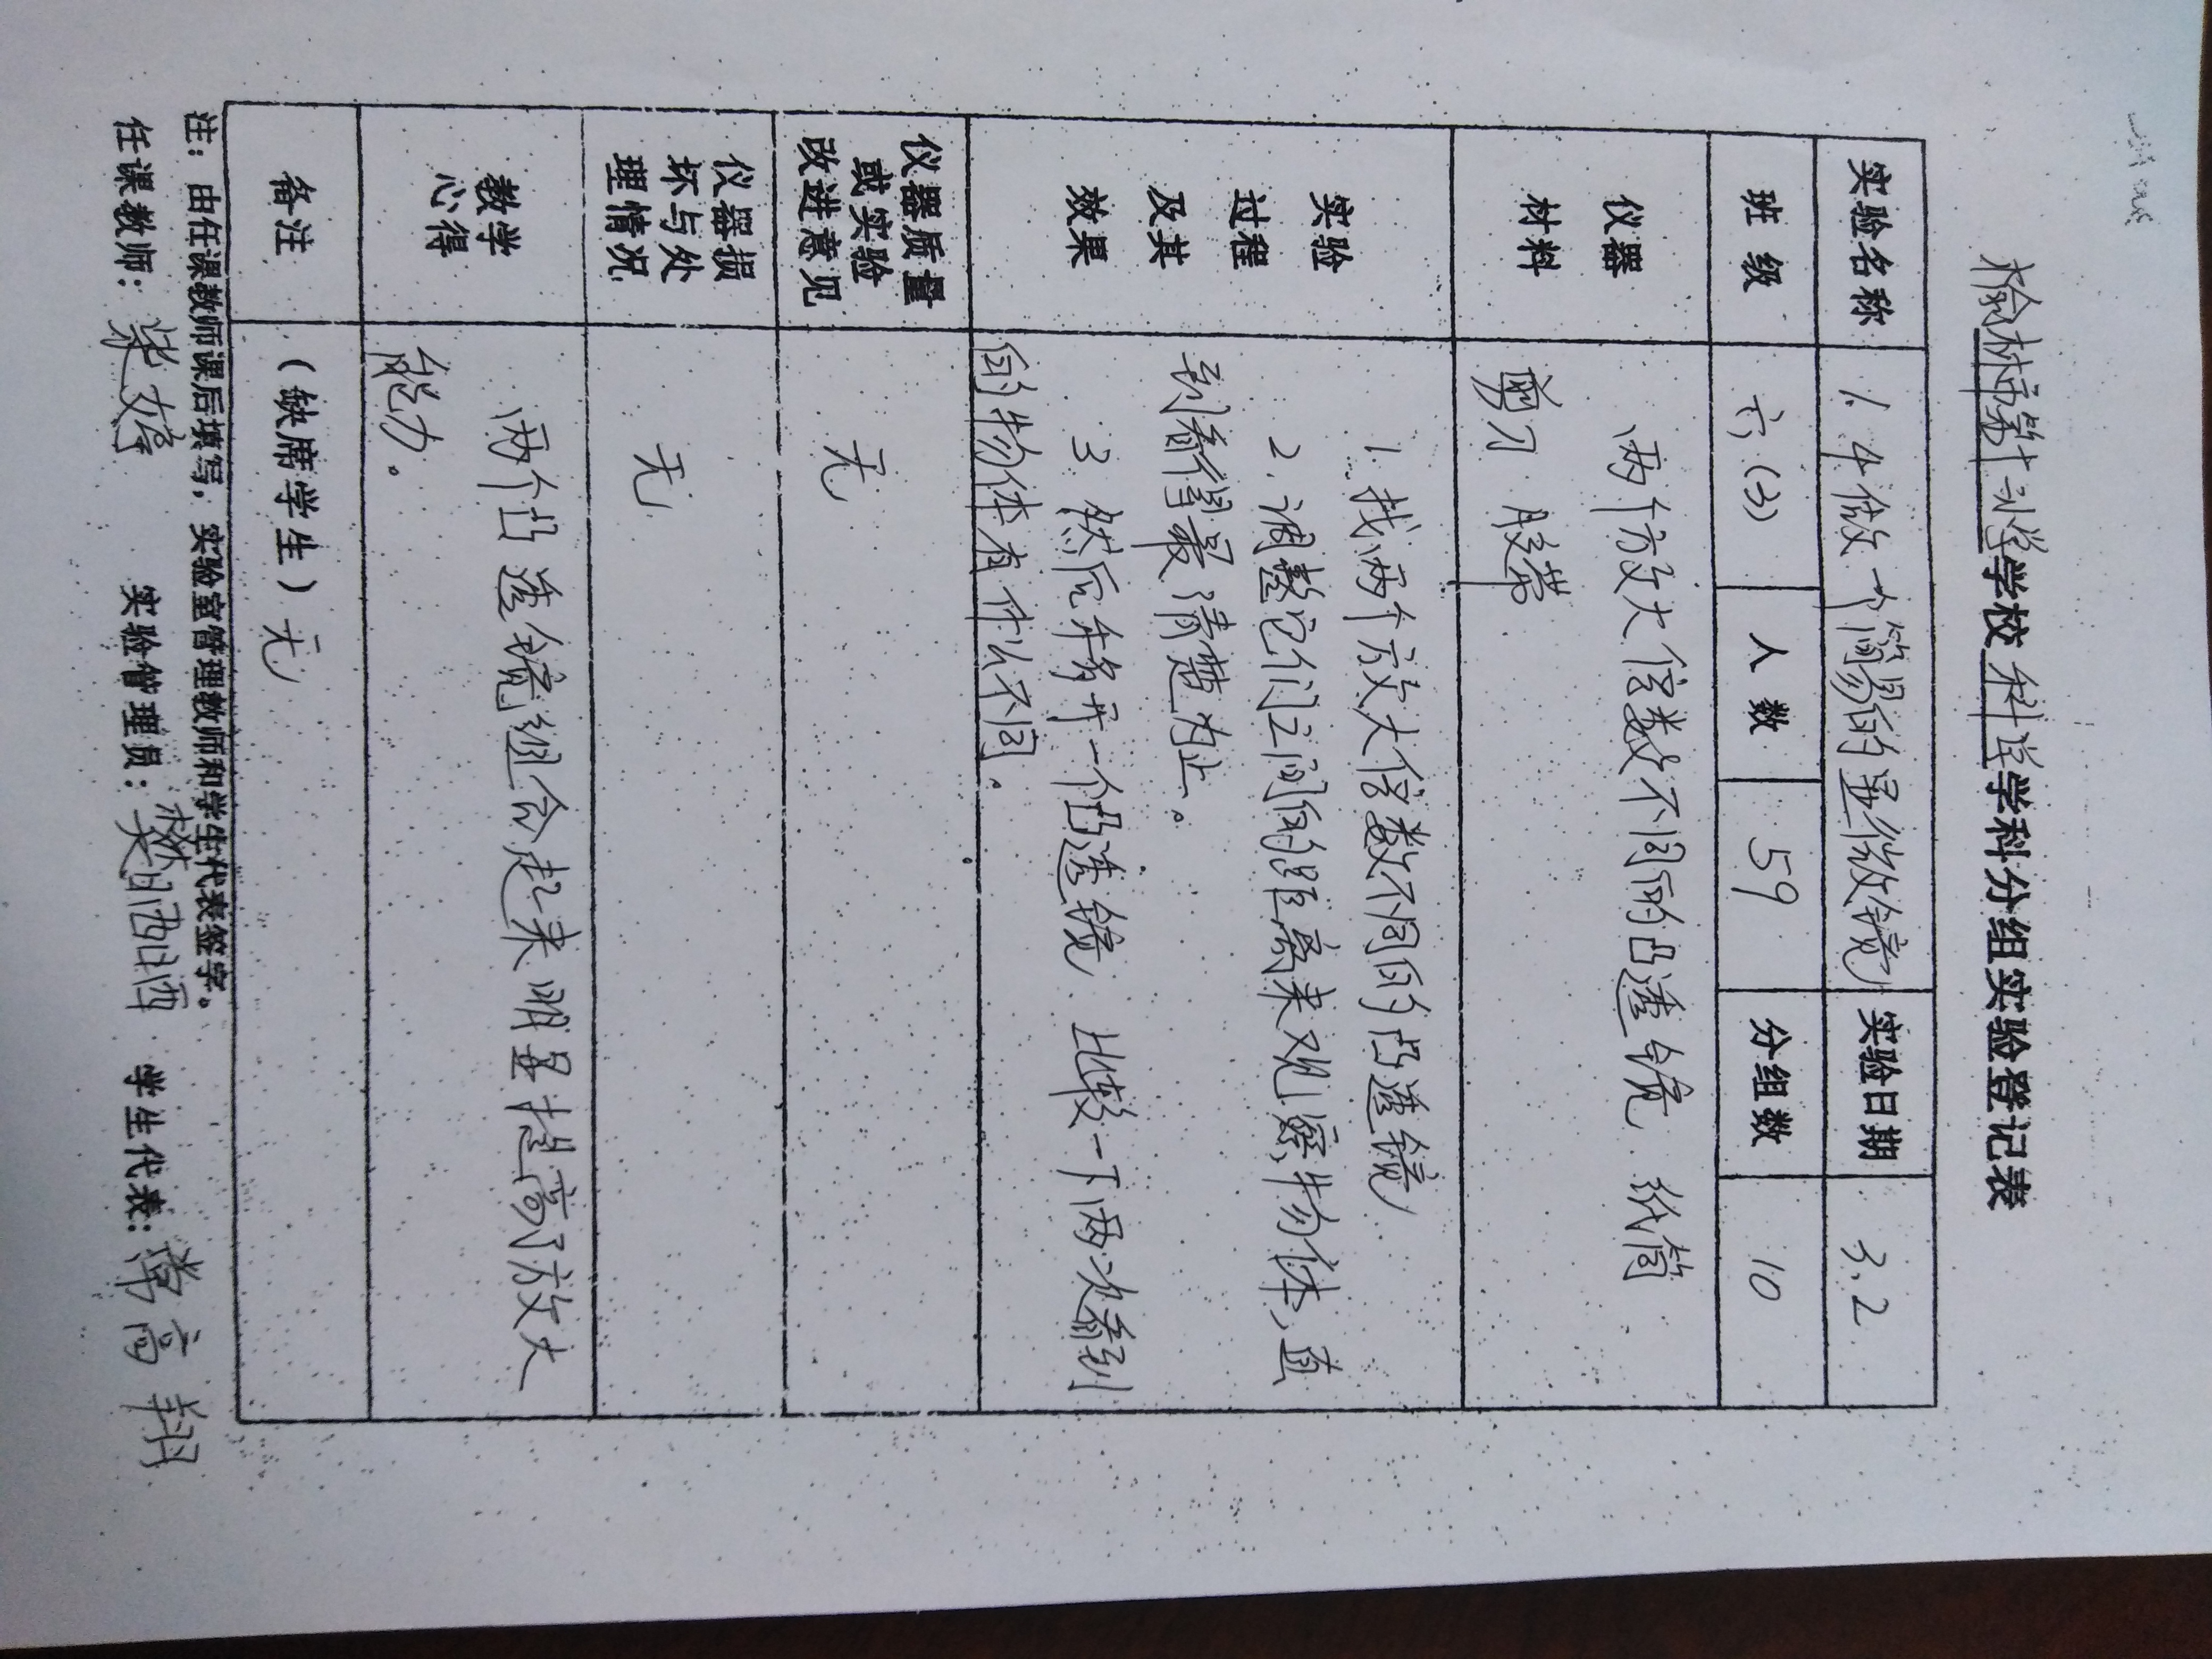 榆林市第十二小学学校科学学科分组实验登记表
实验名称 1.4做一个简易的显微镜 实验日期 3.2
班级 六(3) 人数 59 分组数 10
仪器材料 两个放大倍数不同的凸透镜 纸筒
剪刀 胶带
实验过程及其效果 1.找两个放大倍数不同的凸透镜
2.调整它们之间的距离来观察物体,直
到看得最清楚为止。
3.然后车多开一个凸透镜 比较一下两次看到
的物体有什么不同.
仪器质量或实验改进意见 无
仪器损坏与处理情况 无
教学心得 两个凸透镜组合起来明显提高了放大
能力.
备注 (缺席学生) 无
注:由任课教师课后填写,实验室管理教师和学生代表签字。
任课教师:柴婷 实验管理员: 学生代表:常高翔